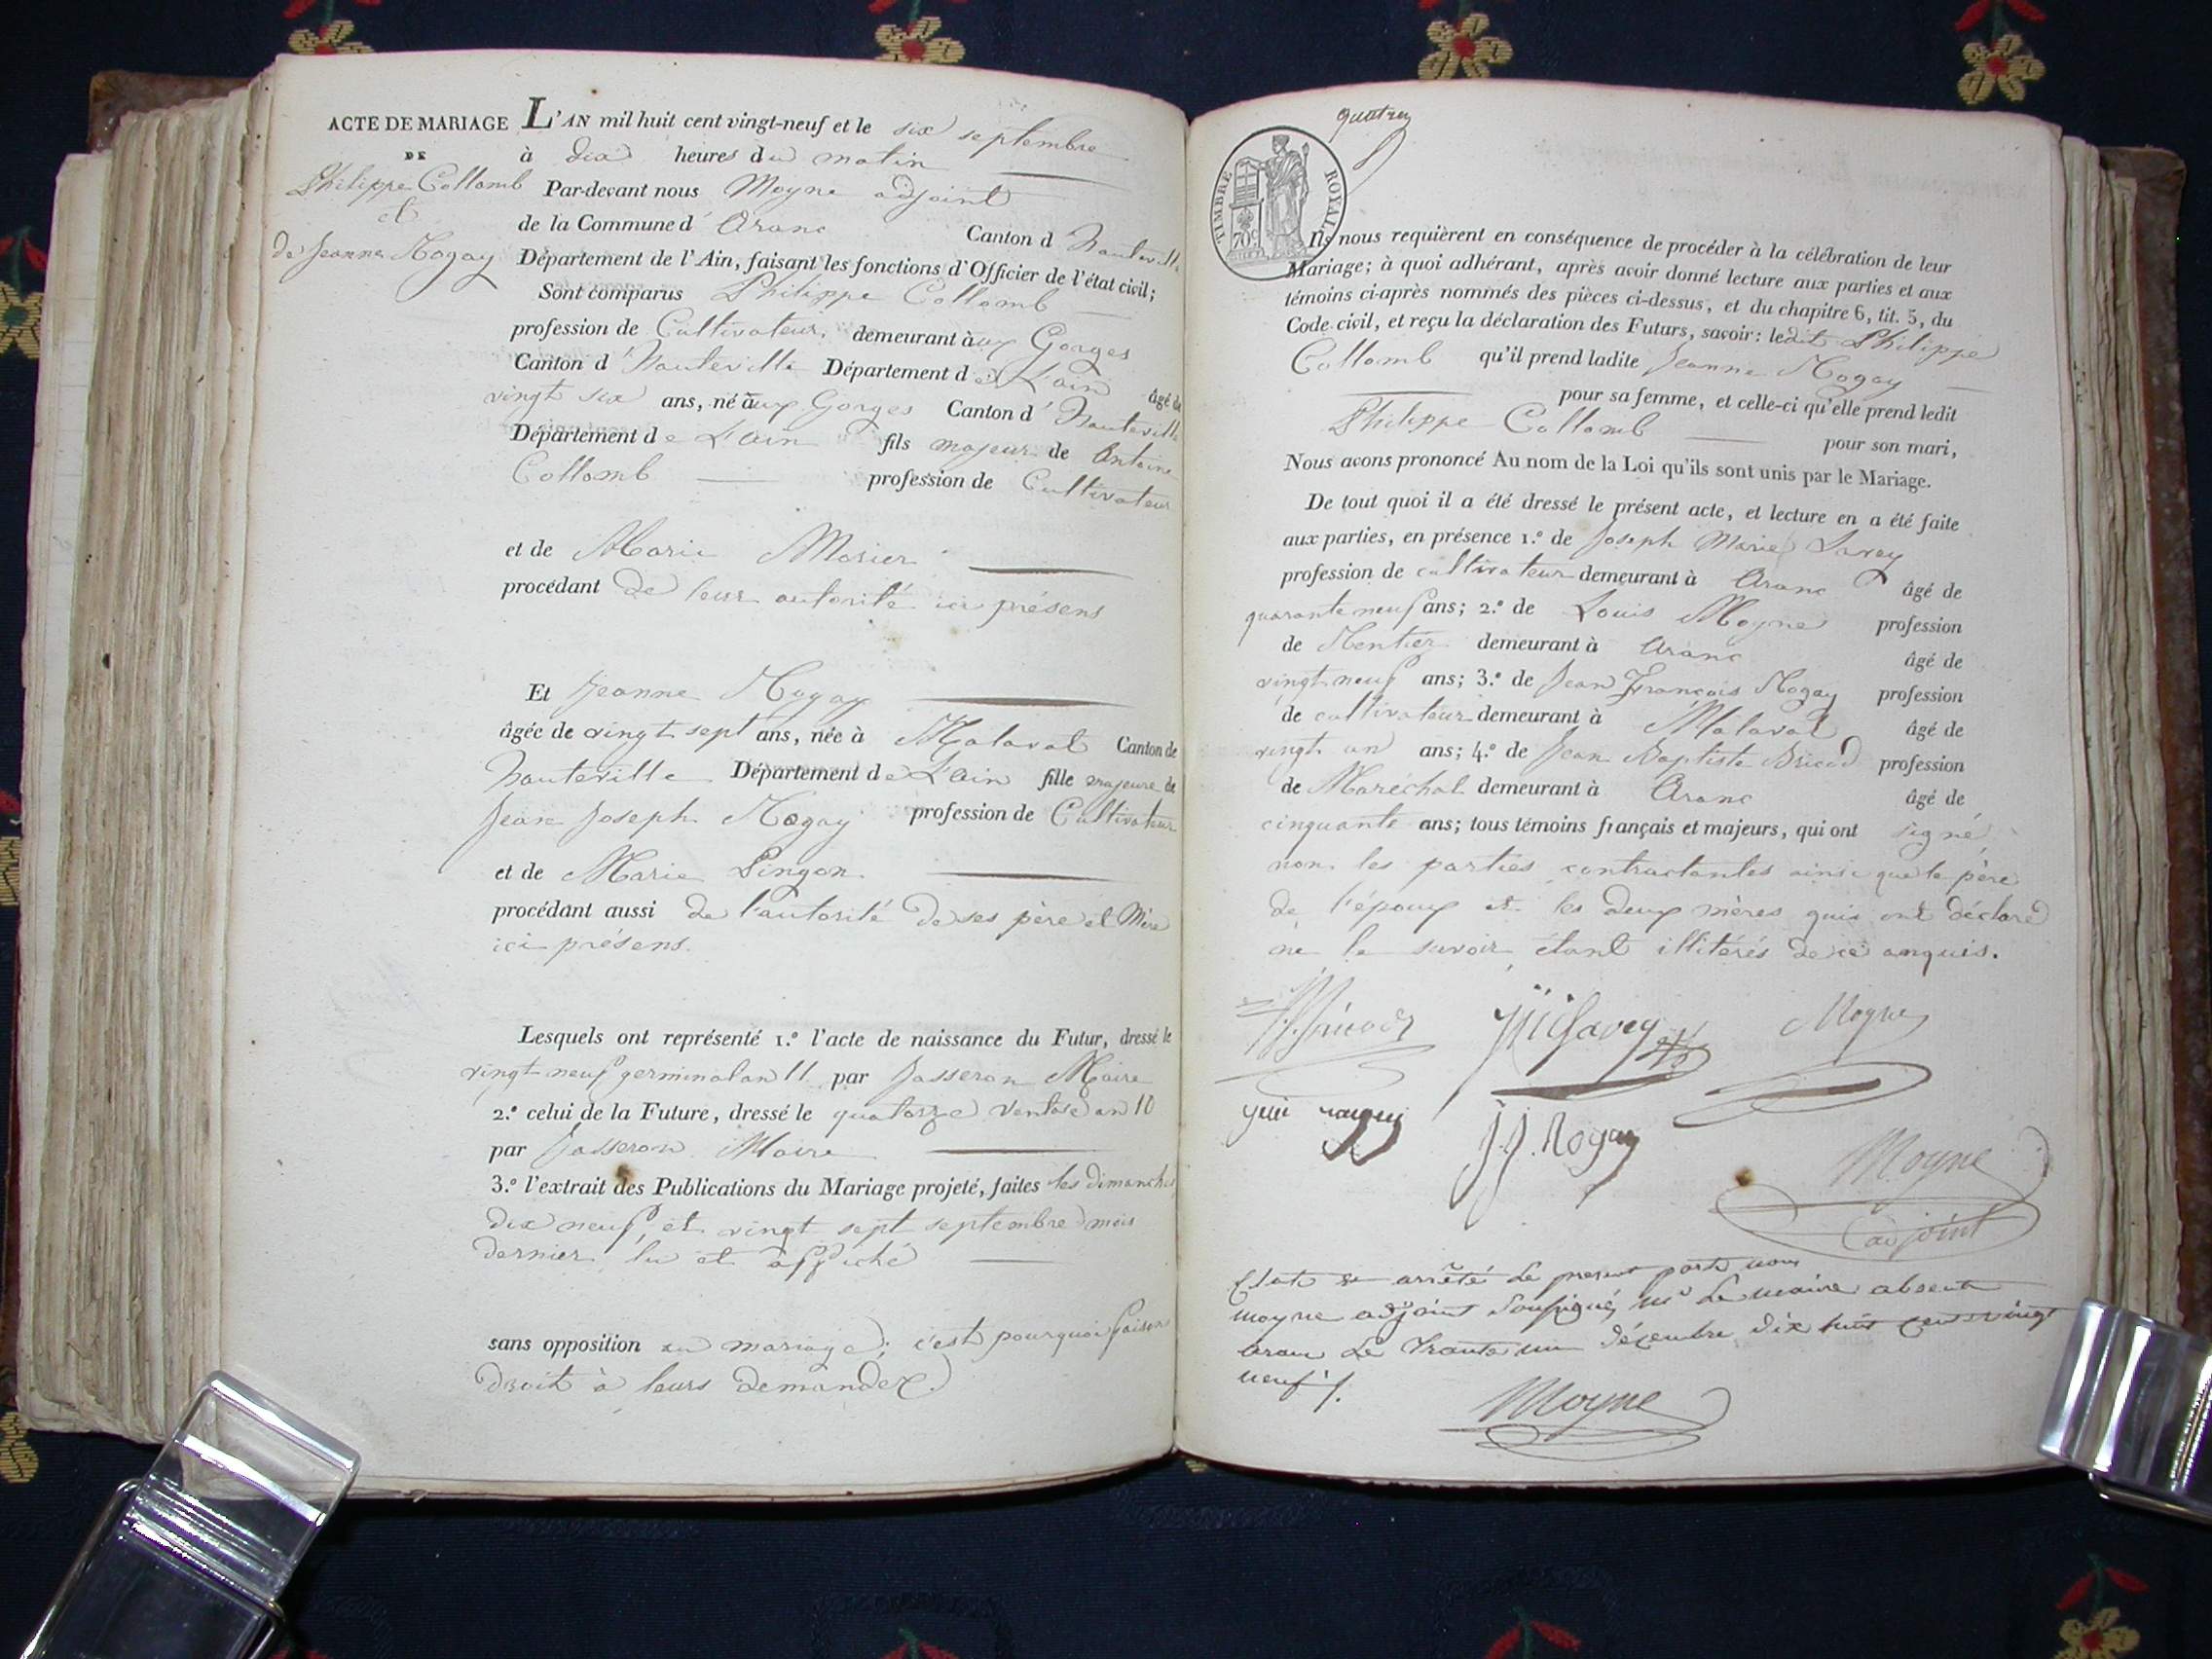 ACTE DE MARIAGE
DE
Philippe Collomb
et
de Jeanne Rogay
L'AN mil huit cent vingt-neuf et le six septembre
à dix heures du matin
Par-devant nous Moyne adjoint
de la Commune d' Aranc Canton d' hauteville
Département de l'Ain, faisant les fonctions d'Officier de l'état civil;
Sont comparus Philippe Collomb
profession de Cultivateur demeurant à ux Gorges
Canton d' hauteville Département de L'ain âgé de
vingt six ans, né aux Gorges Canton d' hauteville
Département de L'ain fils majeur de Antoine
Collomb profession de Cultivateur
et de Marie Morier
procédant de leur autorité ici présens
Et Jeanne Rogay
âgée de vingt sept ans, née à Malaval Canton de
hauteville Département de L'Ain fille majeure de
Jean Joseph Rogay profession de Cultivateur
et de Marie Pingon
procédant aussi de l'autorité de ses père et Mère
ici présens.
Lesquels ont représenté 1.º l'acte de naissance du Futur, dressé le
vingt-neuf germinal an 11 par Jasseron Maire
2.º celui de la Future, dressé le quatorze ventose an 10
par Jasseron Maire
3.º l'extrait des Publications du Mariage projeté, faites les dimanches
dix neuf et vingt sept septembre mois
dernier lu et affiché
sans opposition au mariage; c'est pourquoi faisant
droit à leurs demandes.
TIMBRE ROYAL
70c
Ils nous requièrent en conséquence de procéder à la célébration de leur
Mariage; à quoi adhérant, après avoir donné lecture aux parties et aux
témoins ci-après nommés des pièces ci-dessus, et du chapitre 6, tit. 5, du
Code civil, et reçu la déclaration des Futurs, savoir: ledit Philippe
Collomb qu'il prend ladite Jeanne Rogay
pour sa femme, et celle-ci qu'elle prend ledit
Philippe Collomb pour son mari,
Nous avons prononcé Au nom de la Loi qu'ils sont unis par le Mariage.
De tout quoi il a été dressé le présent acte, et lecture en a été faite
aux parties, en présence 1.º de Joseph Marie Savey
profession de cultivateur demeurant à Aranc âgé de
quarante neuf ans; 2.º de Louis Moyne profession
de Rentier demeurant à Aranc âgé de
vingt neuf ans; 3.º de Jean François Rogay profession
de cultivateur demeurant à Malaval âgé de
vingt un ans; 4.º de Jean Baptiste Bricod profession
de Maréchal demeurant à Aranc âgé de
cinquante ans; tous témoins français et majeurs, qui ont signé,
non les parties contractantes ainsi que le père
de l'époux et les deux mères qui ont déclaré
ne le savoir étant illitérés de ce anquis.
Bricod Savey Moyne
J.J. Rogay
Moyne
adjoint
Clot et arrêté le présent par nous
moyne adjoint Soussigné, mr Le maire absent
aranc Le trante un décembre dix huit cent vingt
neuf
Moyne